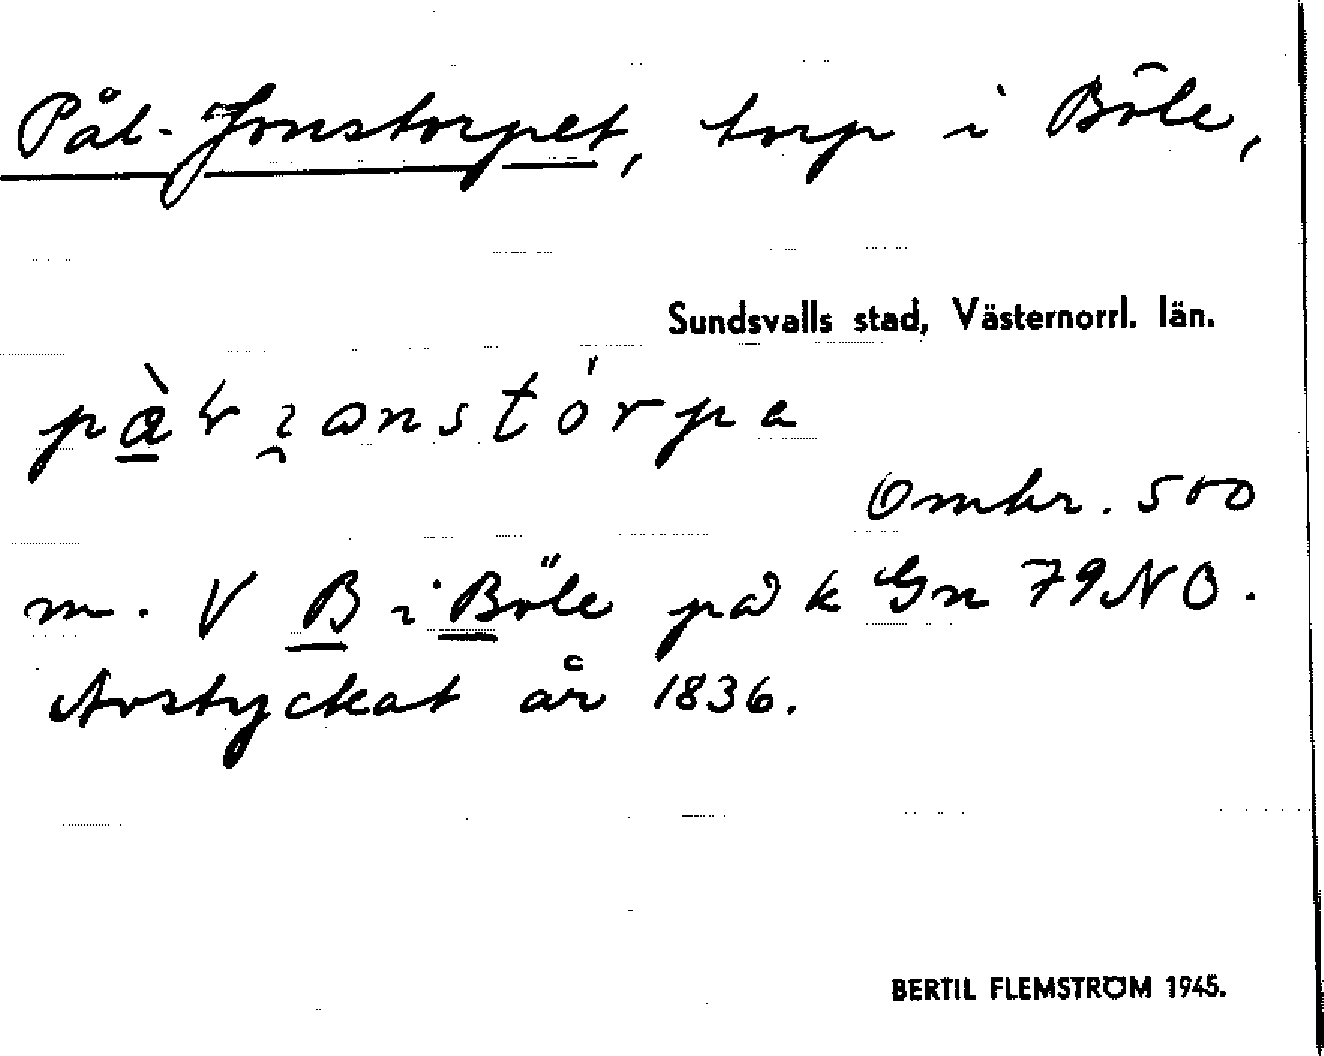 Pål-Jonstorpet, torp i Böle,
Sundsvalls stad, Västernorrl. län.
Ombr. 500
m. V B i Böle på k Gn 79NO.
Avstyckat år 1836.
BERTIL FLEMSTRÖM 1945.